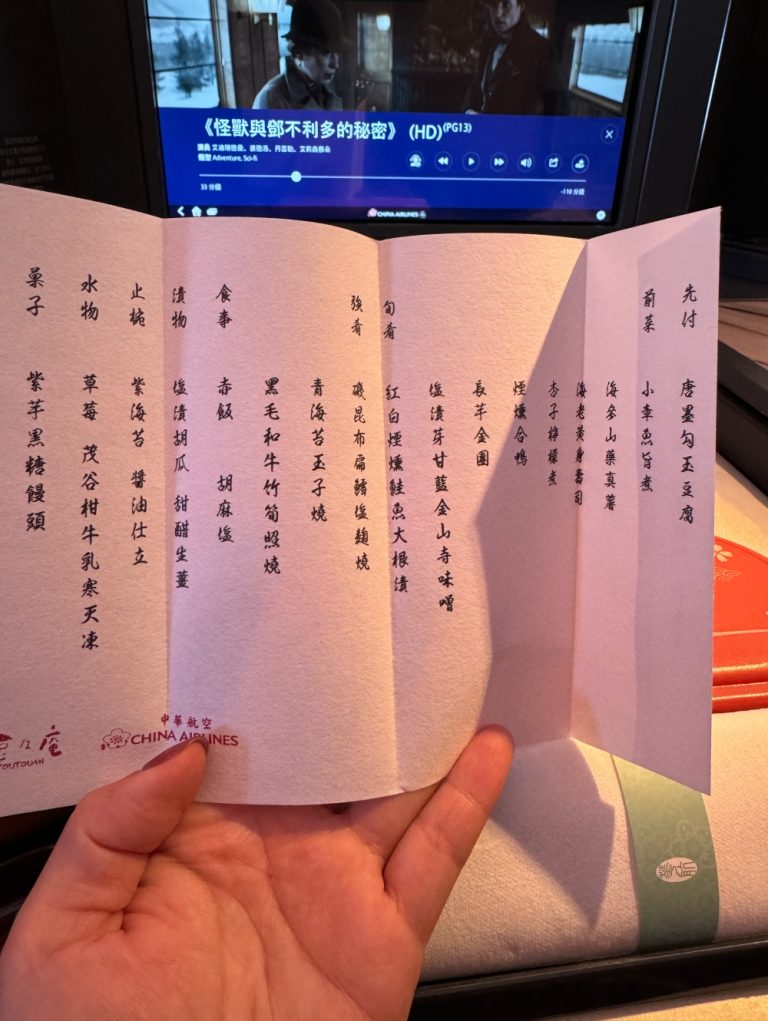 《怪獸與鄧不利多的秘密》 (HD)(PG13)
類型 Adventure, Sci-fi
33 分鐘
-110 分鐘
CHINA AIRLINES
先付 唐墨勾玉豆腐
前菜 小章魚旨煮
海參山藥真薯
海老黃身壽司
杏子檸檬煮
煙燻合鴨
長芋金團
塩漬芽甘藍金山寺味噌
旬肴 紅白煙燻鮭魚大根漬
強肴 磯昆布扁鱈塩麹燒
青海苔玉子燒
黑毛和牛竹筍照燒
食事 赤飯 胡麻塩
漬物 塩漬胡瓜 甜醋生薑
止椀 紫海苔 醬油仕立
水物 草莓 茂谷柑牛乳寒天凍
菓子 紫芋黑糖饅頭
中華航空
CHINA AIRLINES
庵